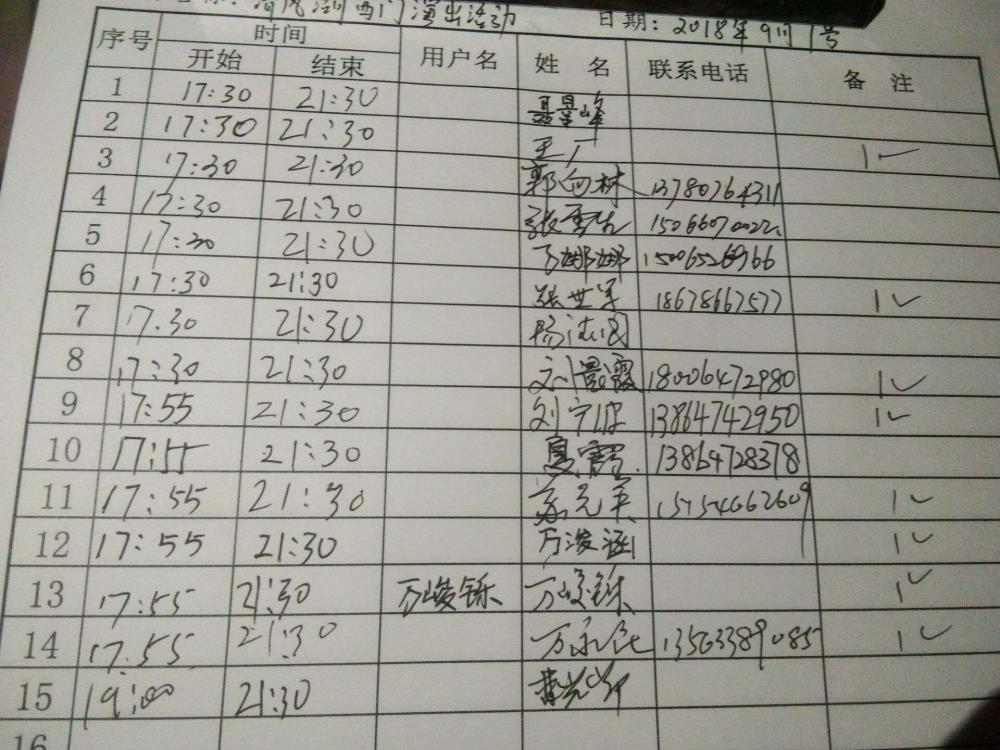 清风湖西门演出活动 日期：2018年9月1号
序号 时间 用户名 姓名 联系电话 备注
开始 结束
1 17:30 21:30 聂景峰
2 17:30 21:30 王厂 1✓
3 17:30 21:30 郭向林 13780764311
4 17:30 21:30 张 15066070022
5 17:30 21:30 娜娜
6 17:30 21:30 张世军 18678667577 1✓
7 17.30 21:30 杨
8 17:30 21:30 刘景霞 18006472980 1✓
9 17:55 21:30 刘 13864742950 1✓
10 17:55 21:30 夏 13864728378
11 17:55 21:30 15154662609 1✓
12 17:55 21:30 万浚涵 1✓
13 17:55 21:30 万峻铄 万峻铄 1✓
14 17.55 21:30 万 13563389085 1✓
15 19:00 21:30
16